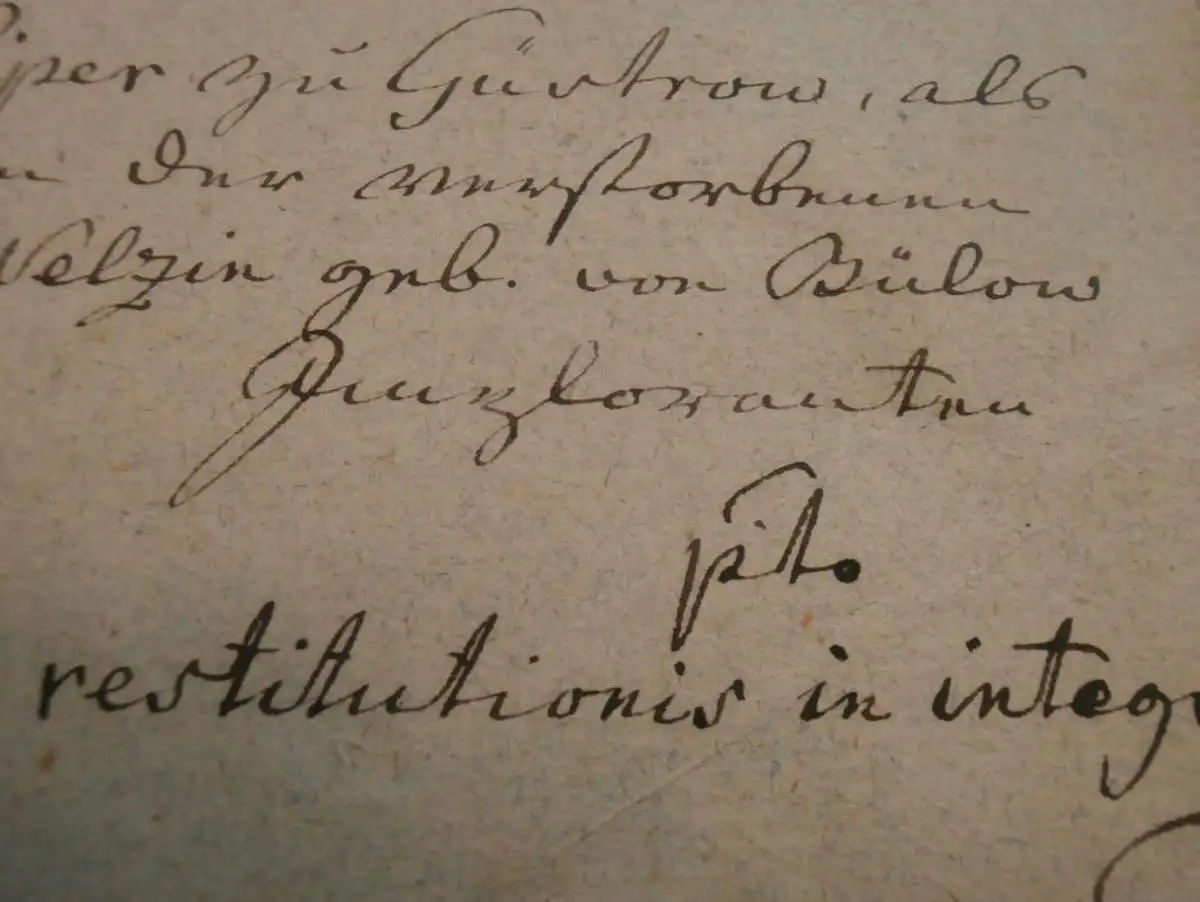 zu Güstrow, als
der verstorbenen
geb. von Bülow
Imploranten
pto.
restitutionis in integr